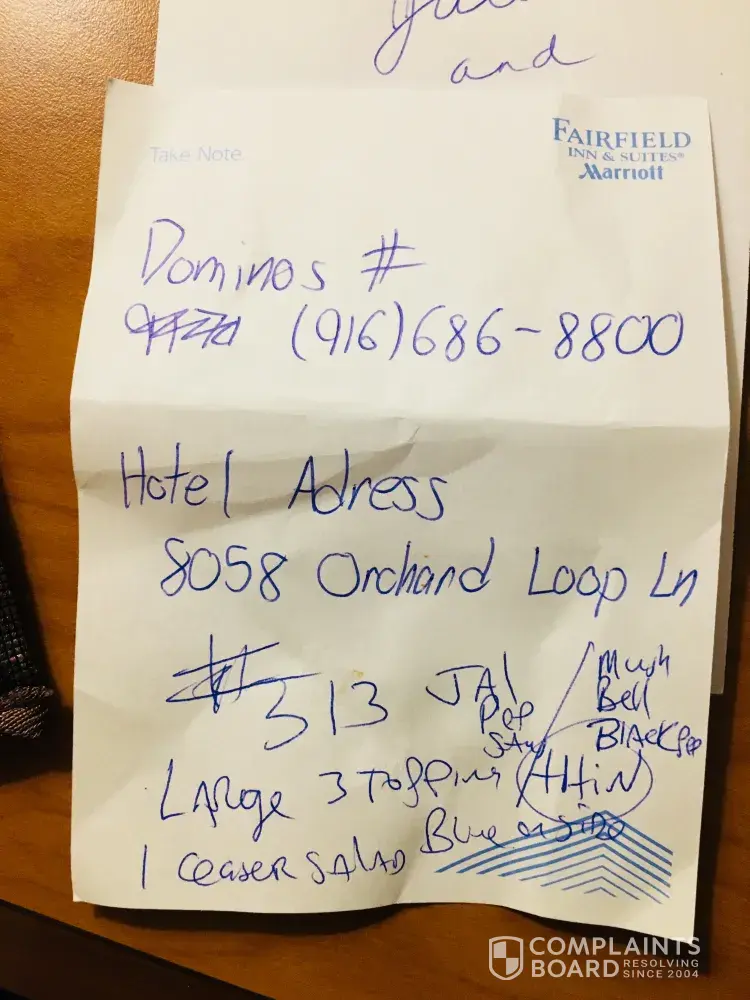 and
Take Note
FAIRFIELD
INN & SUITES®
Marriott
Dominos #
(916) 686-8800
Hotel Adress
8058 Orchard Loop Ln
# 313
JAl
Pep
SAu
Mush
Bell
Black Pep
LARge 3 Topping (tHiN)
1 Ceaser SALAD Blue on side
COMPLAINTS
BOARD RESOLVING
SINCE 2004